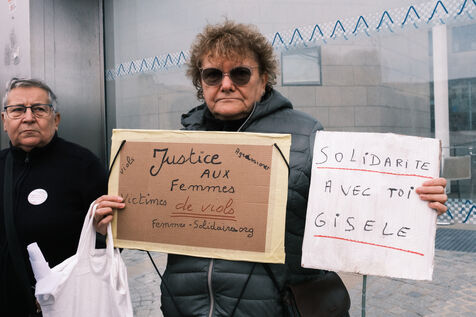 Viols
Agressions
Justice
AUX
Femmes
Victimes de viols
Femmes-Solidaires.org
SOLIDARITE
AVEC TOI
GISELE